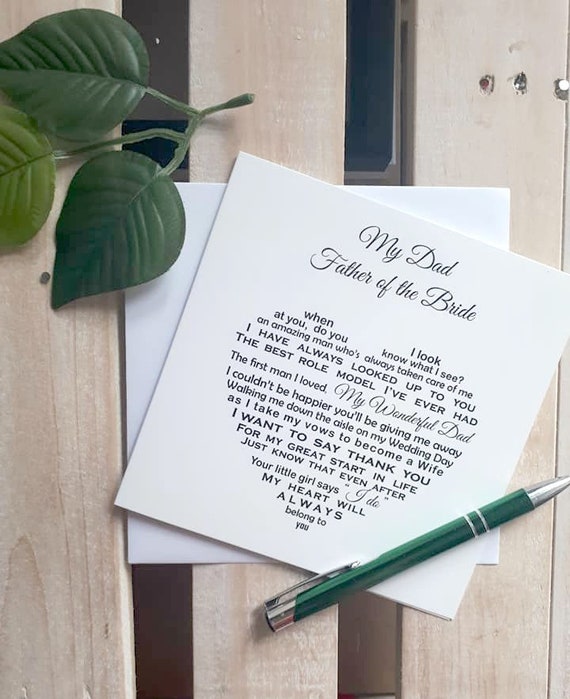 My Dad
Father of the Bride
when I look
at you, do you know what I see?
an amazing man who's always taken care of me
I HAVE ALWAYS LOOKED UP TO YOU
THE BEST ROLE MODEL I'VE EVER HAD
The first man I loved, My Wonderful Dad
I couldn't be happier you'll be giving me away
Walking me down the aisle on my Wedding Day
as I take my vows to become a Wife
I WANT TO SAY THANK YOU
FOR MY GREAT START IN LIFE
JUST KNOW THAT EVEN AFTER
Your little girl says "I do"
MY HEART WILL
ALWAYS
belong to
you